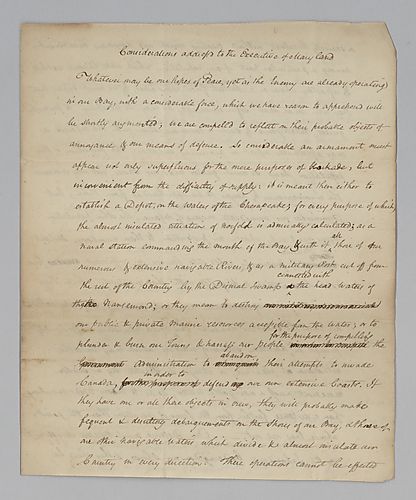 Considerations addressed to the Executive of Maryland
Whatever may be our hopes of Peace, yet as the Enemy are already operating
in our Bay, with a considerable force, which we have reason to apprehend will
be shortly augmented; we are compelled to reflect on their probable objects of
annoyance & our means of defence. So considerable an armament must
appear not only superfluous for the mere purposes of blockade, but
inconvenient from the difficulty of supply: it is meant then either to
establish a Depot, on the waters of the Chesapeake; for every purpose of which,
the almost insulated situation of Norfolk is admirably calculated; as a
naval station commanding the mouth of the Bay & with it all those of our
numerous & extensive navigable Rivers & as a military Post cut off from
the rest of the Country by the Dismal Swamp connected with the head waters of
the Nansemond; or they mean to destroy
our public & private marine resources accessible from the water; or to
plunder & burn our Towns & harrass our people for the purpose of compelling the
Government administration to abandon their attempts to invade
Canada, in order to defend our own extensive Coasts. If
they have one or all these objects in view, they will probably make
frequent & desultory debarquements on the Shores of our Bay, & those of
our other navigable waters which divide & almost insulate our
Country in every direction. These operations cannot be effected